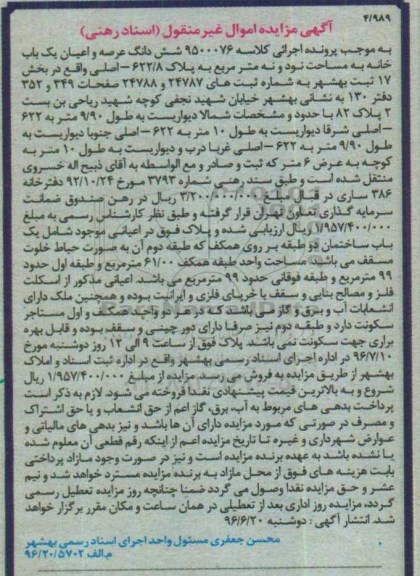 ۴/۹۸۹
آگهی مزایده اموال غیر منقول (اسناد رهنی)
به موجب پرونده اجرائی کلاسه ۹۵۰۰۰۷۶ شش دانگ عرصه و اعیان یک باب
خانه به مساحت نود و نه متر مربع به پلاک ۶۲۲/۸ – اصلی واقع در بخش
۱۷ ثبت بهشهر به شماره ثبت های ۲۴۷۸۷ و ۲۴۷۸۸ صفحات ۳۴۹ و ۳۵۲
دفتر ۱۳۰ به نشانی بهشهر خیابان شهید نجفی کوچه شهید ریاحی بن بست
۲ پلاک ۸۲ با حدود و مشخصات شمالا دیواریست به طول ۹/۹۰ متر به ۶۲۲
– اصلی شرقا دیواریست به طول ۱۰ متر به ۶۲۲ – اصلی جنوبا دیواریست به
طول ۹/۹۰ متر به ۶۲۲ – اصلی غربا درب و دیواریست به طول ۱۰ متر به
کوچه به عرض ۶ متر که ثبت و صادر و مع الواسطه به آقای ذبیح اله خسروی
منتقل شده است و طبق سند رهنی شماره ۳۷۹۳ مورخ ۹۲/۱۰/۲۴ دفترخانه
۳۸۶ ساری در قبال مبلغ ۳/۲۰۰/۰۰۰/۰۰۰ ریال در رهن صندوق ضمانت
سرمایه گذاری تعاون تهران قرار گرفته و طبق نظر کارشناس رسمی به مبلغ
۱/۹۵۷/۴۰۰/۰۰۰ ریال ارزیابی شده و پلاک فوق در اعیانی موجود شامل یک
باب ساختمان دو طبقه بر روی همکف که طبقه دوم آن به صورت حیاط خلوت
مسقف می باشد. مساحت واحد طبقه همکف ۶۱/۰۰ مترمربع و طبقه اول حدود
۹۹ مترمربع و طبقه فوقانی حدود ۹۹ مترمربع می باشد. اعیانی مذکور از اسکلت
فلز و مصالح بنایی و سقف با خرپای فلزی و ایرانیت بوده و همچنین ملک دارای
انشعابات آب و برق و گاز می باشد که در هر دو واحد همکف و اول مستاجر
سکونت دارد و طبقه دوم نیز صرفا دارای دور چینی و سقف بوده و قابل بهره
براری جهت سکونت نمی باشد. پلاک فوق از ساعت ۹ الی ۱۲ روز دوشنبه مورخ
۹۶/۷/۱۰ در اداره اجرای اسناد رسمی بهشهر واقع در اداره ثبت اسناد و املاک
بهشهر از طریق مزایده به فروش می رسد. مزایده از مبلغ ۱/۹۵۷/۴۰۰/۰۰۰ ریال
شروع و به بالاترین قیمت پیشنهادی نقدا فروخته می شود. لازم به ذکر است
پرداخت بدهی های مربوط به آب، برق، گاز اعم از حق انشعاب و یا حق اشتراک
و مصرف در صورتی که مورد مزایده دارای آن ها باشد و نیز بدهی های مالیاتی و
عوارض شهرداری و غیره تا تاریخ مزایده اعم از اینکه رقم قطعی آن معلوم شده
یا نشده باشد به عهده برنده مزایده است و نیز در صورت وجود مازاد پرداختی
بابت هزینه های فوق از محل مازاد به برنده مزایده مسترد خواهد شد و نیم
عشر و حق مزایده نقدا وصول می گردد ضمنا چنانچه روز مزایده تعطیل رسمی
گردد، مزایده روز اداری بعد از تعطیلی در همان ساعت و مکان مقرر برگزار خواهد
شد. انتشار آگهی : دوشنبه ۹۶/۶/۲۰
محسن جعفری مسئول واحد اجرای اسناد رسمی بهشهر
م.الف ۹۶/۲۰/۵۷۰۲